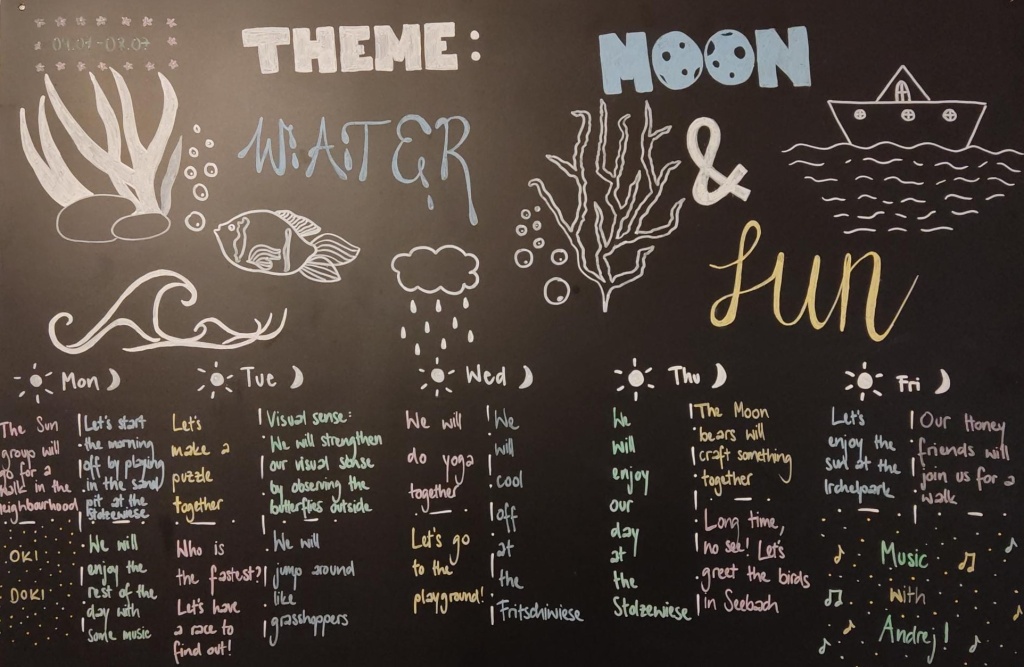 04.07-08.07
THEME:
WATER
MOON
&
SUN
Mon
The Sun
group will
go for a
walk in the
neighbourhood
OKI
DOKI
Let's start
the morning
off by playing
in the sand
pit at the
Stolzewiese
We will
enjoy the
rest of the
day with
some music
Tue
Let's
make a
puzzle
together
Who is
the fastest?
Let's have
a race to
find out!
Visual sense:
We will strengthen
our visual sense
by observing the
butterflies outside
We will
jump around
like
grasshoppers
Wed
We will
do yoga
together
Let's go
to the
playground!
We
will
cool
off
at
the
Fritschiwiese
Thu
We
will
enjoy
our
day
at
the
Stolzewiese
The Moon
bears will
craft something
together
Long time,
no see! Let's
greet the birds
in Seebach
Fri
Let's
enjoy the
sun at the
Irchelpark
Our Honey
friends will
join us for a
walk
Music
with
Andrej!